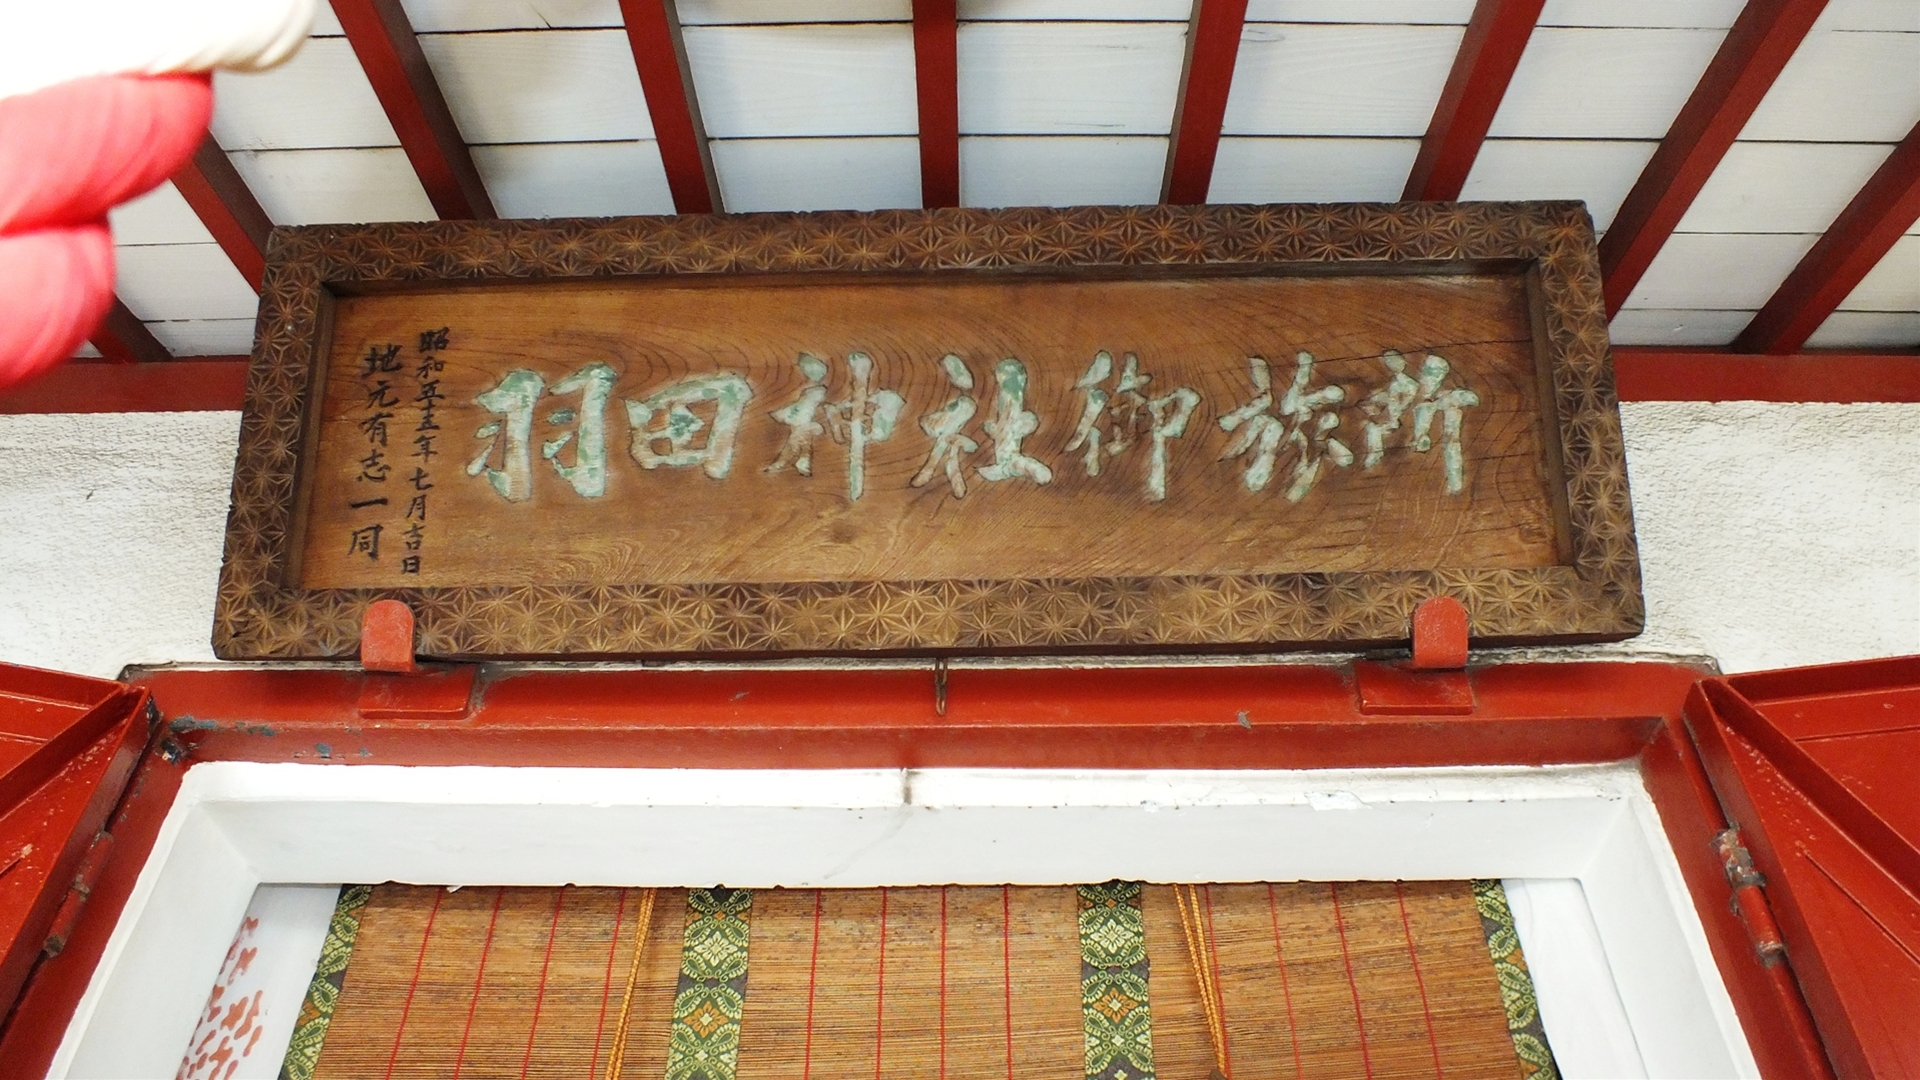 羽田神社御旅所
昭和五十五年七月吉日
地元有志一同